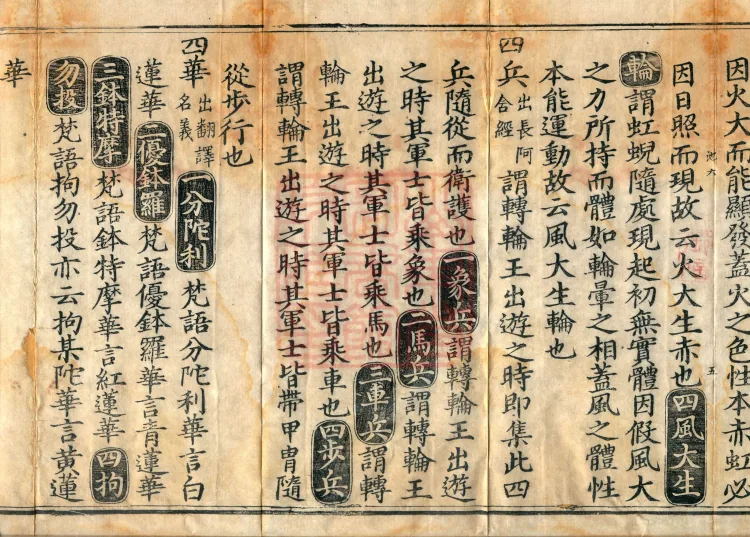 因火大而能顯發蓋火之色性本赤虹必
因日照而現故云火大生赤也四風大生
輪謂虹蜺隨處現起初無實體因假風大
之力所持而體如輪暈之相蓋風之體性
本能運動故云風大生輪也
四兵出長阿含經謂轉輪王出遊之時即集此四
兵隨從而衛護也一象兵謂轉輪王出遊
之時其軍士皆乘象也二馬兵謂轉輪王
出遊之時其軍士皆乘馬也三車兵謂轉
輪王出遊之時其軍士皆乘車也四步兵
謂轉輪王出遊之時其軍士皆帶甲冑隨
從步行也
四華出翻譯名義一分陀利梵語分陀利華言白
蓮華二優鉢羅梵語優鉢羅華言青蓮華
三鉢特摩梵語鉢特摩華言紅蓮華四拘
勿投梵語拘勿投亦云拘某陀華言黃蓮
華